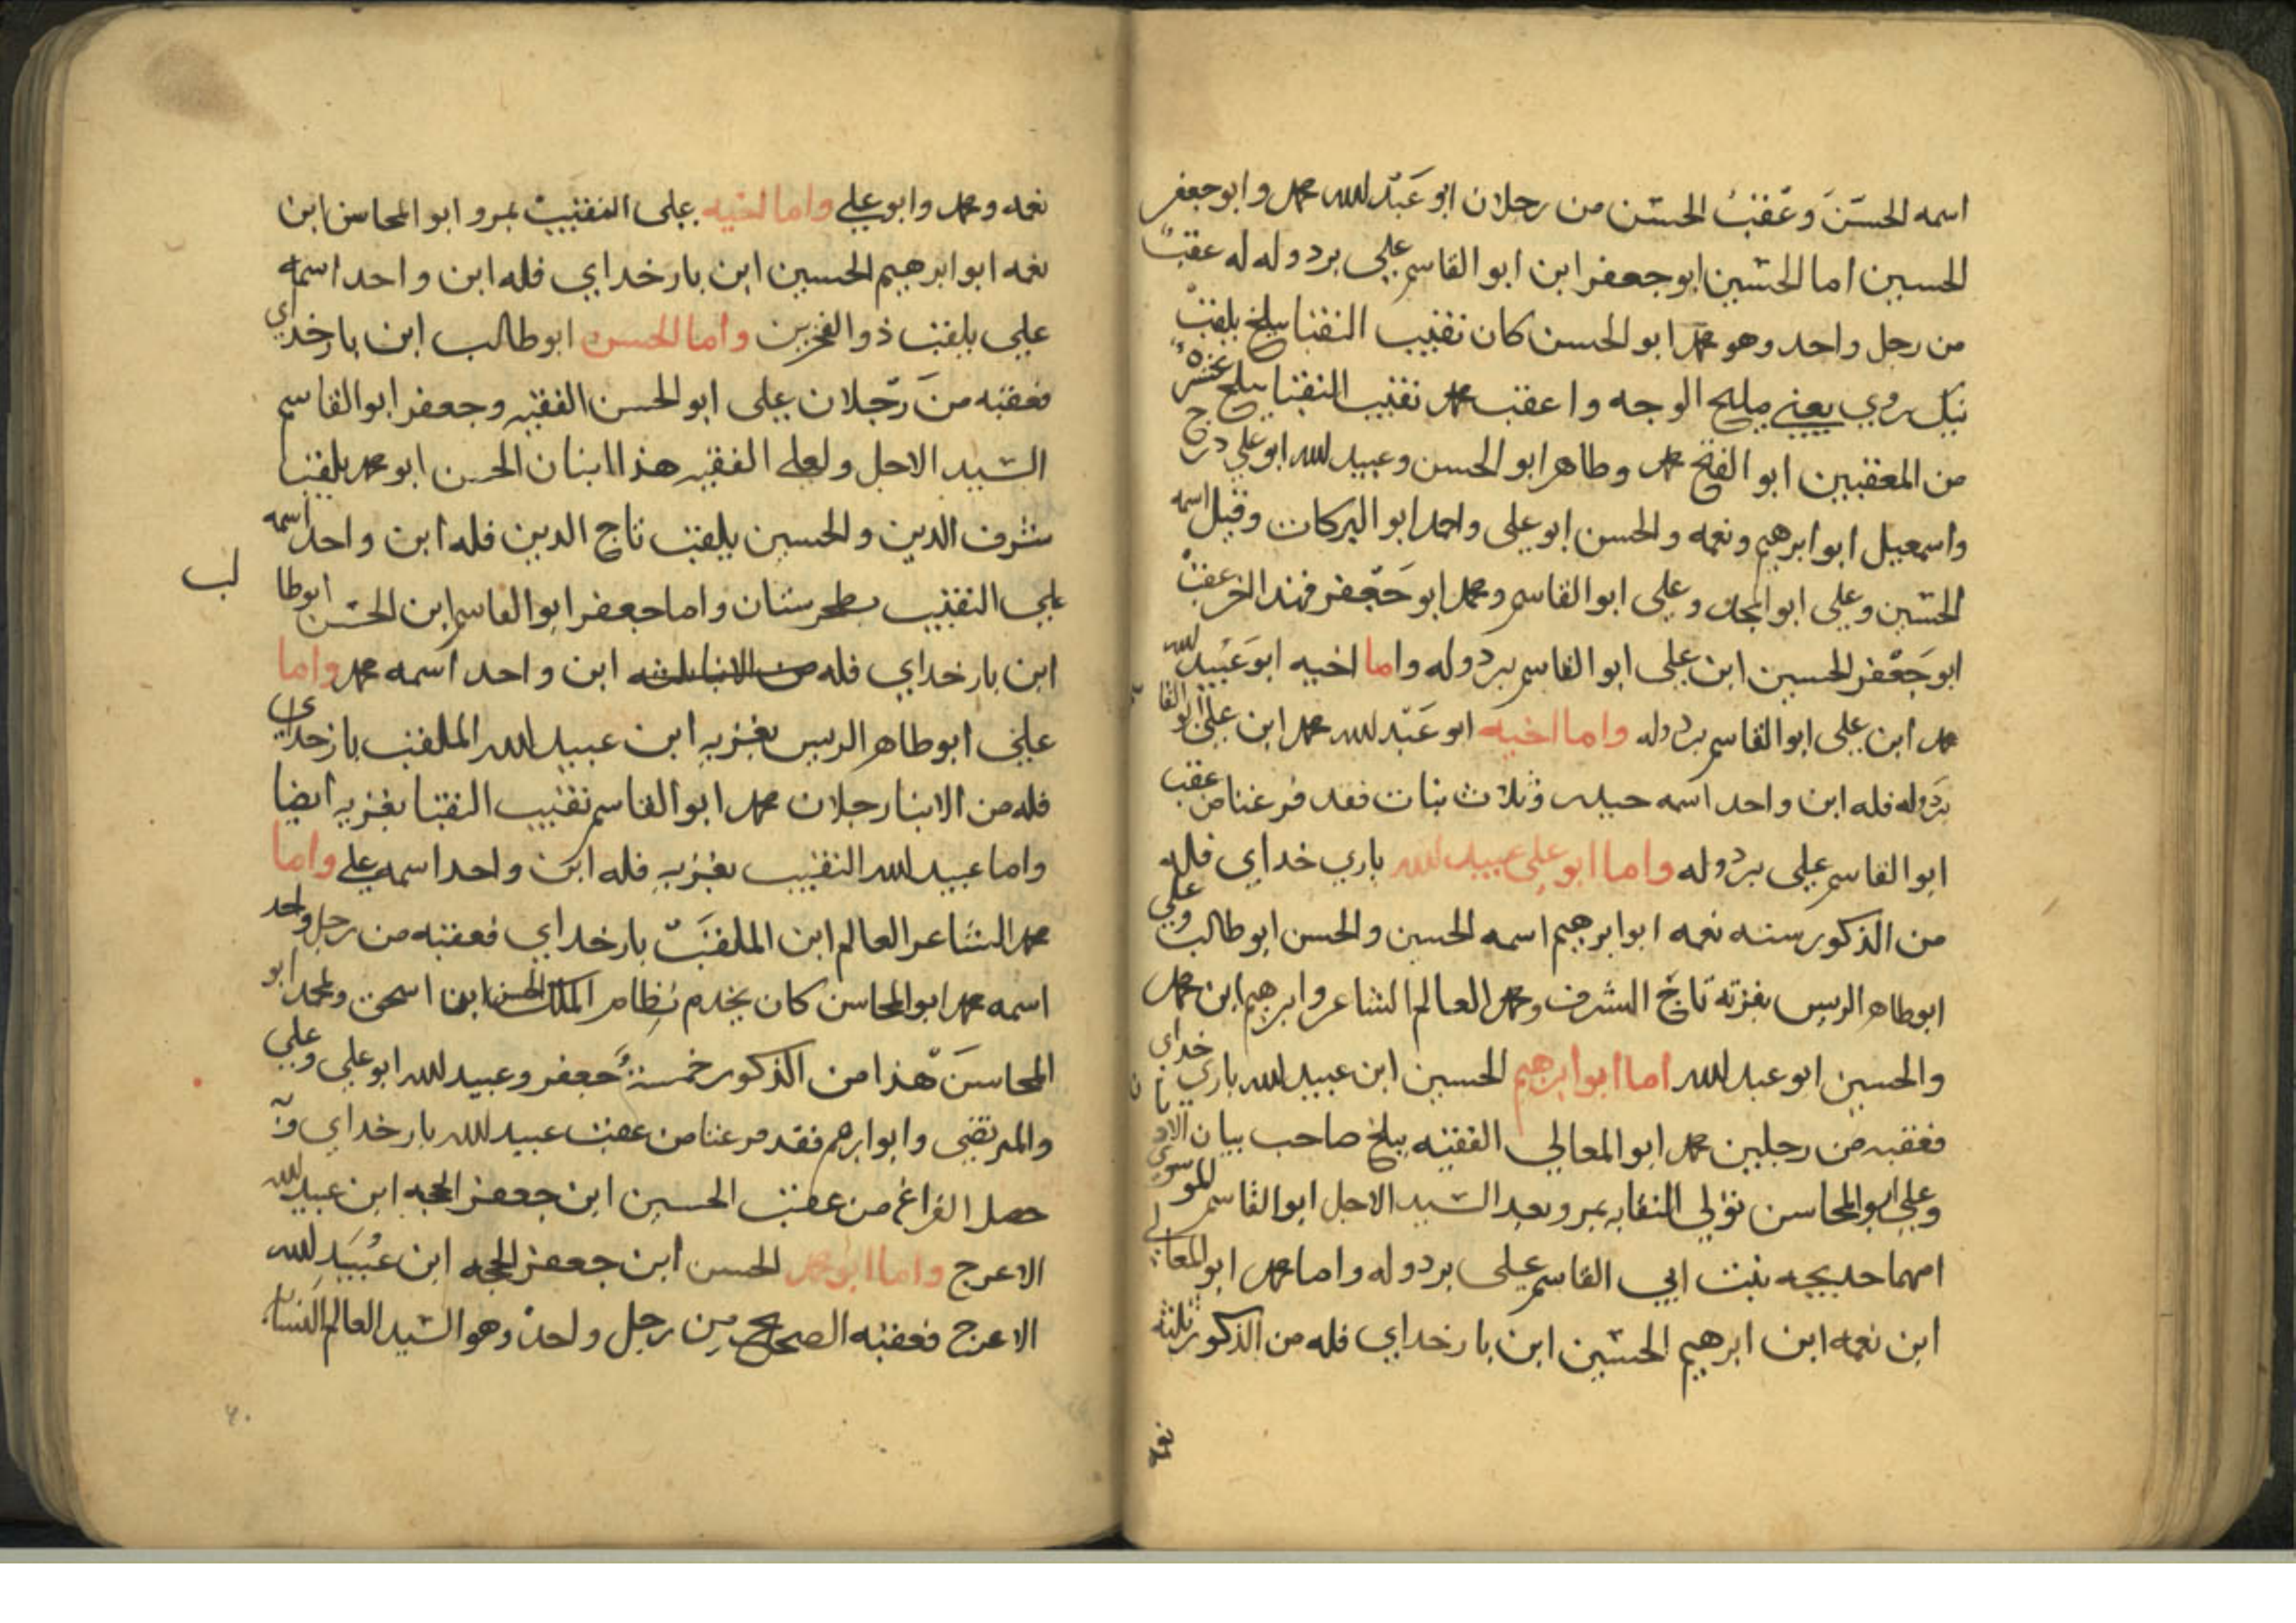 اسمه الحسن وعقب الحسن من رجلان ابو عبد الله محمد وابو جعفر
الحسين اما الحسين ابو جعفر ابن ابو القاسم علي بردوله له عقب
من رجل واحد وهو محمد ابو الحسن كان نقيب النقبا ببلخ يلقب
نيك روي يعني مليح الوجه واعقب محمد نقيب النقبا ببلخ عشره
من المعقبين ابو الفتح محمد وطاهر ابو الحسن وعبيد الله ابو علي درج
واسمعيل ابو ابرهيم ونعمه والحسن ابو علي واحمد ابو البركات وقيل اسمه
الحسين وعلي ابو المجد وعلي ابو القاسم ومحمد ابو جعفر فهذا اخر عقب
ابو جعفر الحسين ابن علي ابو القاسم بردوله واما اخيه ابو عبيد الله
محمد ابن علي ابو القاسم بردوله واما اخيه ابو عبد الله محمد ابن علي ابو القا
بردوله فله ابن واحد اسمه حيدر وثلاث بنات فقد فرغنا من عقب
ابو القاسم علي بردوله واما ابو علي عبيد الله باري خداي فله
من الذكور سته نعمه ابو ابرهيم اسمه الحسين والحسن ابو طالب وعلي
ابو طاهر الريس بغزنه تاج الشرف ومحمد العالم الشاعر وابرهيم ابن محمد
والحسين ابو عبد الله اما ابو ابرهيم الحسين ابن عبيد الله باري خداي
فعقبه من رجلين محمد ابو المعالي الفقيه ببلخ صاحب بيان الاديان
وعلي ابو المحاسن تولي النقابه بمرو بعد السيد الاجل ابو القاسم الموسوي
امهما خديجه بنت ابي القاسم علي بردوله واما محمد ابو المعالي
ابن نعمه ابن ابرهيم الحسين ابن بار خداي فله من الذكور ثلثه
نعمه
نعمه ومحمد وابو علي واما اخيه علي النقيب بمرو ابو المحاسن ابن
نعمه ابو ابرهيم الحسين ابن بار خداي فله ابن واحد اسمه
علي يلقب ذو الفخرين واما الحسن ابو طالب ابن بار خداي
فعقبه من رجلان علي ابو الحسن الفقيه وجعفر ابو القاسم
السيد الاجل ولعلي الفقيه هذا ابنان الحسن ابو محمد يلقب
شرف الدين والحسين يلقب تاج الدين فله ابن واحد اسمه
علي النقيب بطخرستان واما جعفر ابو القاسم ابن الحسن ابو طا
لب
ابن بار خداي فله من الابنا ثلثه ابن واحد اسمه محمد واما
علي ابو طاهر الريس بغزنه ابن عبيد الله الملقب بار خداي
فله من الابنا رجلان محمد ابو القاسم نقيب النقبا بغزنه ايضا
واما عبيد الله النقيب بغزنه فله ابن واحد اسمه علي واما
محمد الشاعر العالم ابن الملقب بار خداي فعقبه من رجل واحد
اسمه محمد ابو المحاسن كان يخدم نظام الملك الحسن ابن اسحق ولمحمد ابو
المحاسن هذا من الذكور خمسة جعفر وعبيد الله ابو علي وعلي
والمرتضي وابو ابرهيم فقد فرغنا من عقب عبيد الله بار خداي وَ
حصل الفراغ من عقب الحسين ابن جعفر الحجه ابن عبيد الله
الاعرج واما ابو محمد الحسن ابن جعفر الحجه ابن عبيد الله
الاعرج فعقبه الصحيح من رجل واحد وهو السيد العالم النسابه